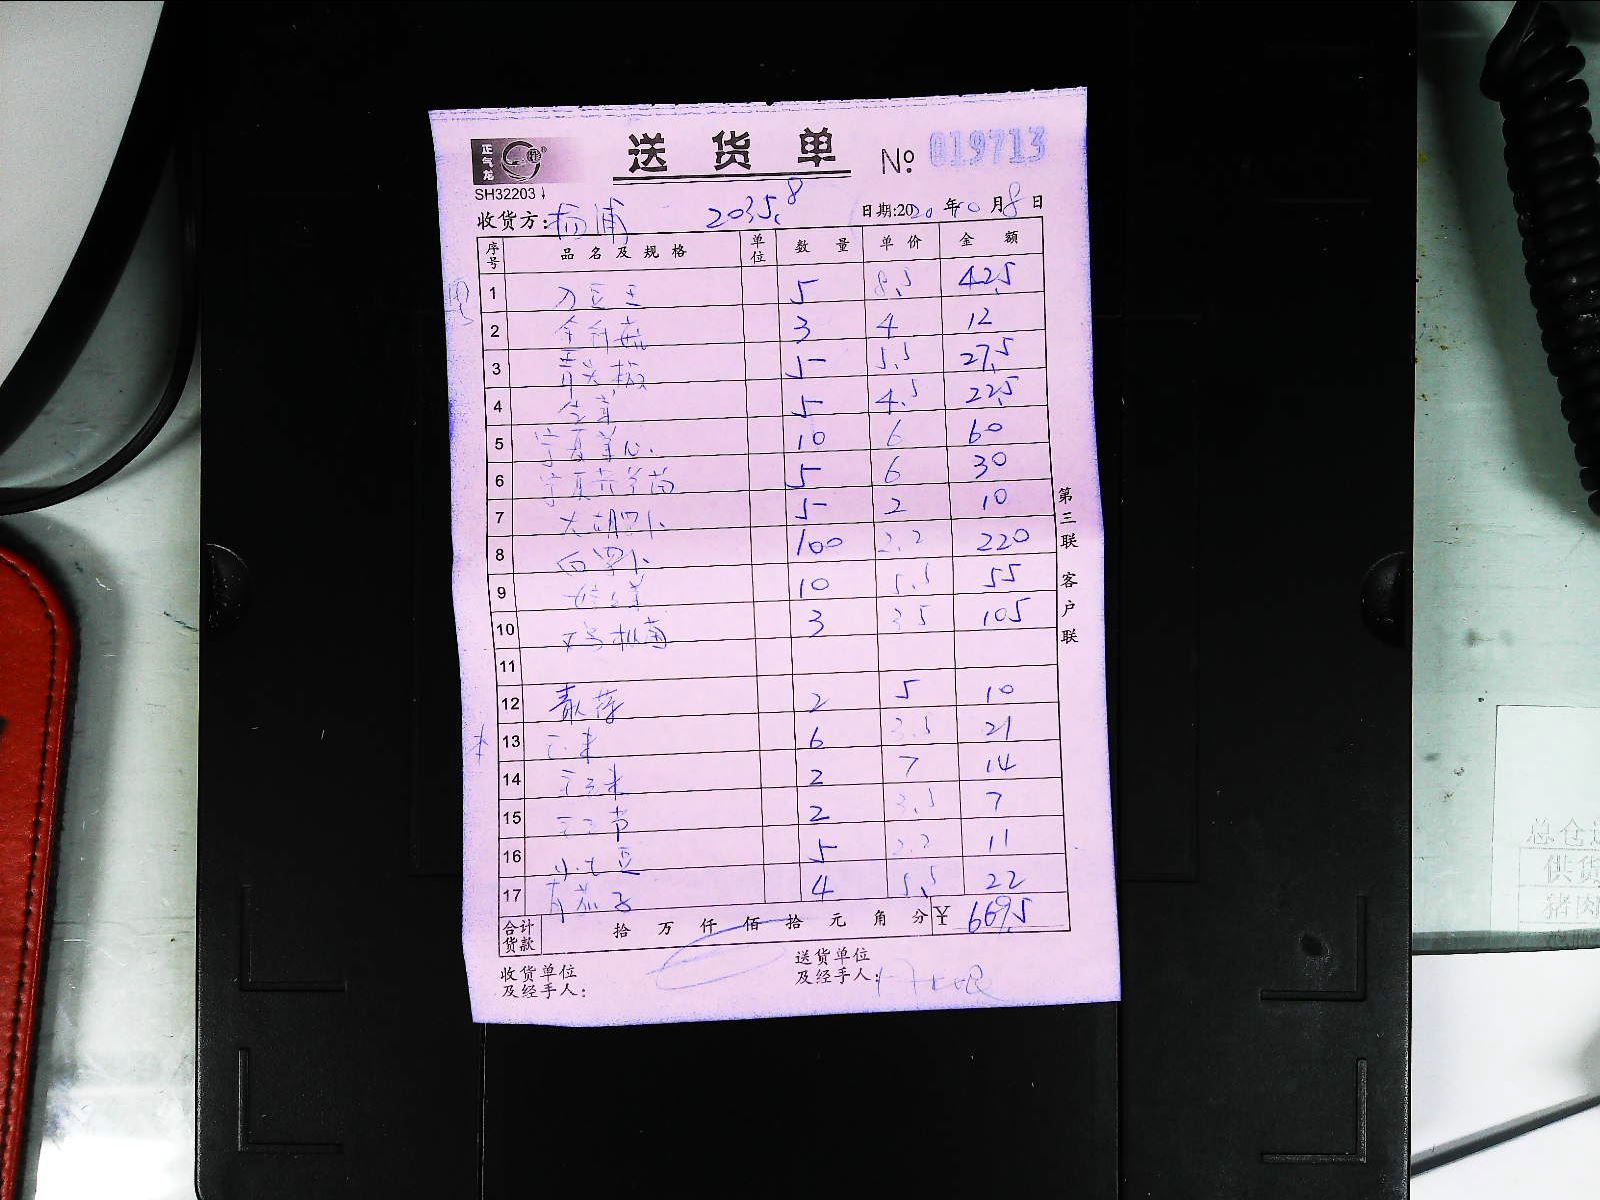 正气龙
SH32203
送货单 No 019713
收货方: 杨浦 2035.8 日期:2020年10月8日
序号 品名及规格 单位 数量 单价 金额
1 刀豆王 5 8.5 42.5
2 金针菇 3 4 12
3 青尖椒 5 5.5 27.5
4 5 4.5 22.5
5 宁夏菜心 10 6 60
6 宁夏 5 6 30
7 大胡罗卜 5 2 10
8 白罗卜 100 2.2 220
9 10 5.5 55
10 3 35 105
11
12 2 5 10
13 6 3.5 21
14 2 7 14
15 2 3.5 7
16 小土豆 5 2.2 11
17 青茄子 4 5.5 22
合计货款 拾 万 仟 佰 拾 元 角 分 ¥ 669.5
收货单位及经手人:
送货单位及经手人:
第三联 客户联
总仓
供货
猪肉